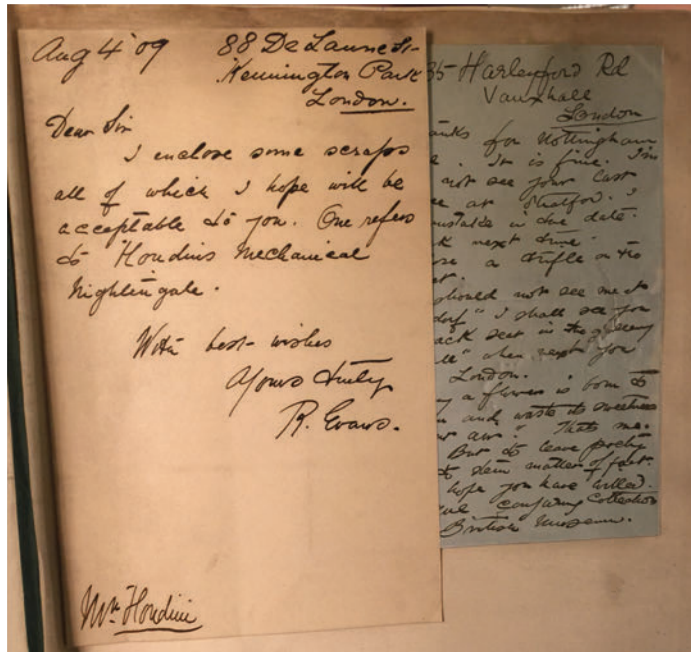 Aug 4 '09
88 De Laune St-
Kennington Park
London.
Dear Sir
I enclose some scraps
all of which I hope will be
acceptable to you. One refers
to "Houdins Mechanical
Nightingale.
With best wishes
Yours truly
R. Evans.
Mr. Houdini
35 Harleyford Rd
Vauxhall
London
for Nottingham
It is fine. I'm
not see your last
at Stratford. I
in due date.
next time.
a trifle on the
should not see me at
I shall see you
seat in the gallery
when next you
London.
a flower is born to
and waste its sweetness
air." Thats me.
But to leave poetry
to stern matter of fact.
hope you have willed
conjuring collection
British Museum.